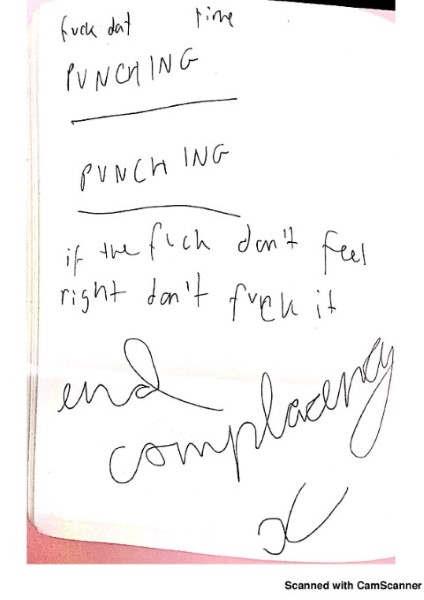 fuck dat time
PUNCHING
PUNCHING
if the fuck don't feel
right don't fuck it
end
complacency
x
Scanned with CamScanner